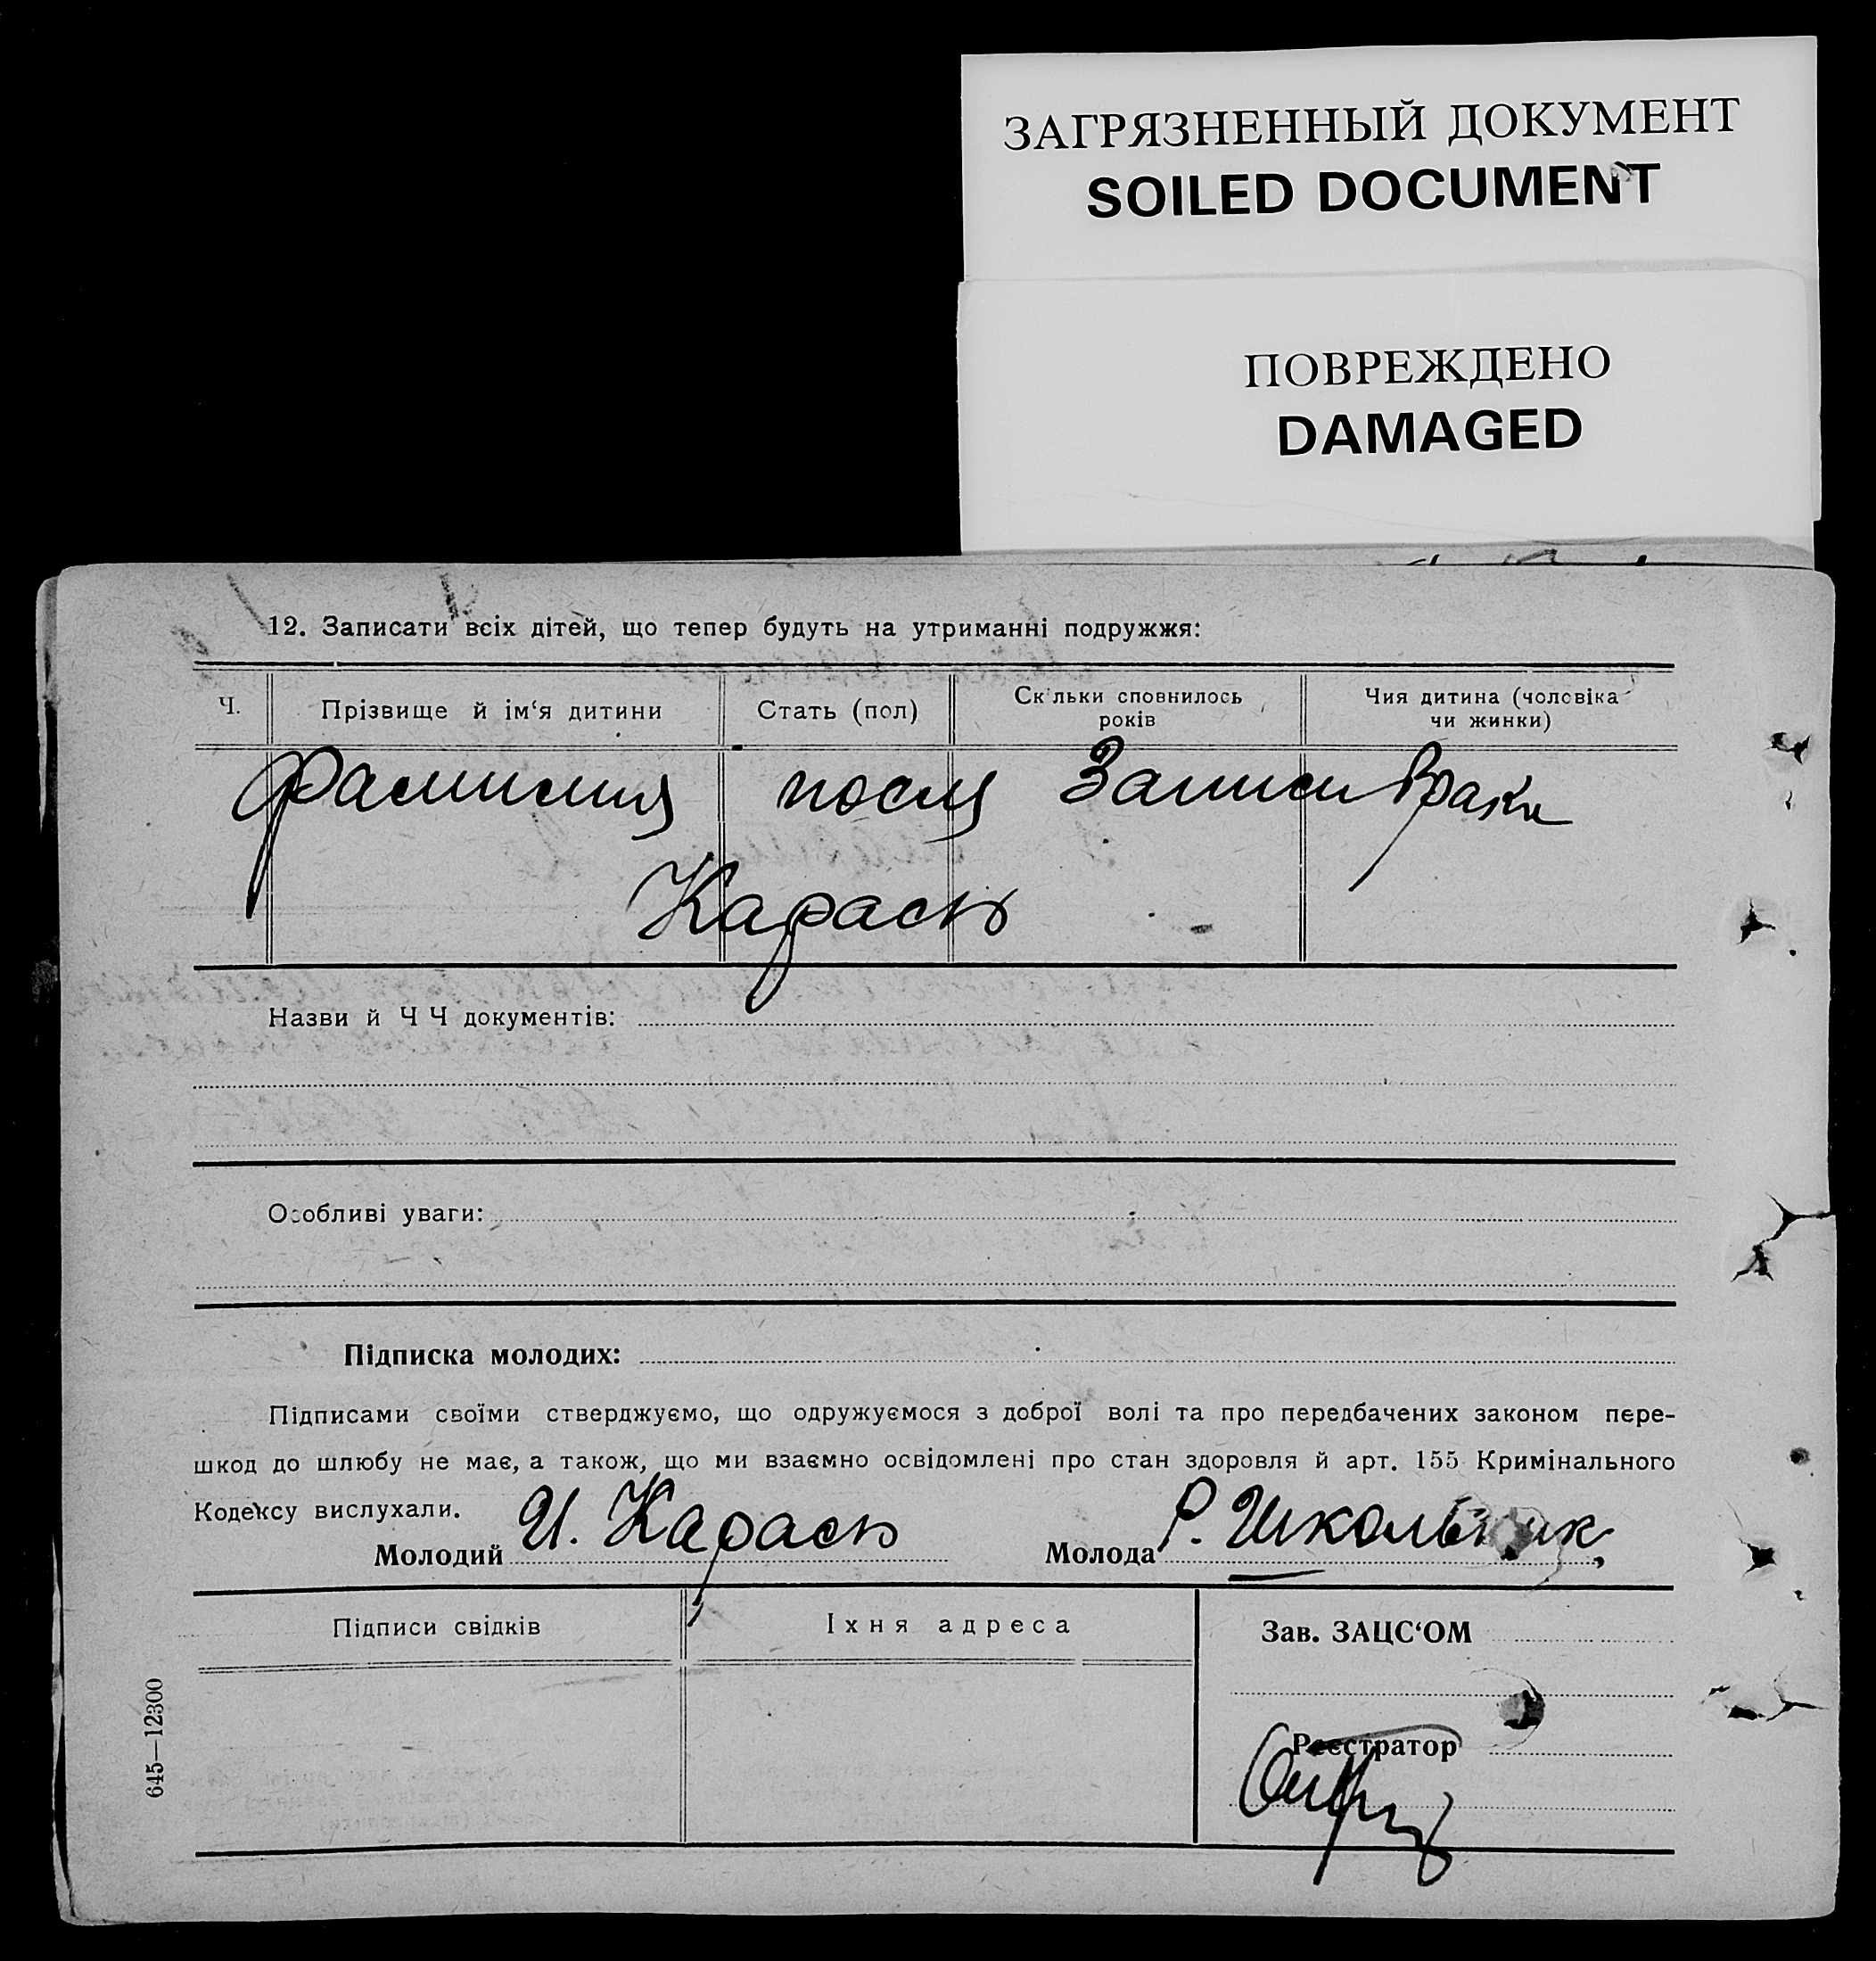 ЗАГРЯЗНЕННЫЙ ДОКУМЕНТ
SOILED DOCUMENT
ПОВРЕЖДЕНО
DAMAGED
12. Записати всіх дітей, що тепер будуть на утриманні подружжя:
Ч. Прізвище й ім‘я дитини Стать (пол) Скільки сповнилось років Чия дитина (чоловіка чи жинки)
Фамилия после Записи Брака
Карась
Назви й ЧЧ документів:
Особливі уваги:
Підписка молодих:
Підписами своїми стверджуємо, що одружуємося з доброї волі та про передбачених законом пере-
шкод до шлюбу не має, а також, що ми взаємно освідомлені про стан здоровля й арт. 155 Кримінального
Кодексу вислухали.
Молодий И. Карась Молода Р. Школьник
Підписи свідків Їхня адреса Зав. ЗАЦС‘ОМ
Реєстратор
645—12300